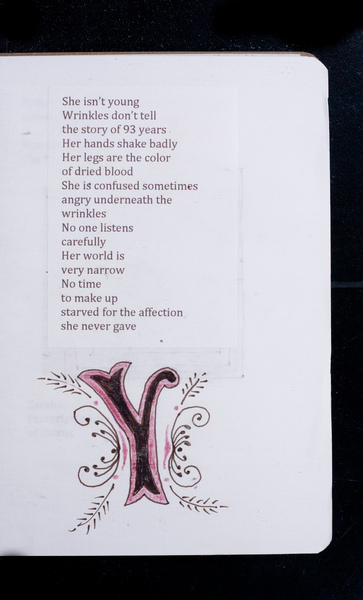 She isn't young
Wrinkles don't tell
the story of 93 years
Her hands shake badly
Her legs are the color
of dried blood
She is confused sometimes
angry underneath the
wrinkles
No one listens
carefully
Her world is
very narrow
No time
to make up
starved for the affection
she never gave
Y